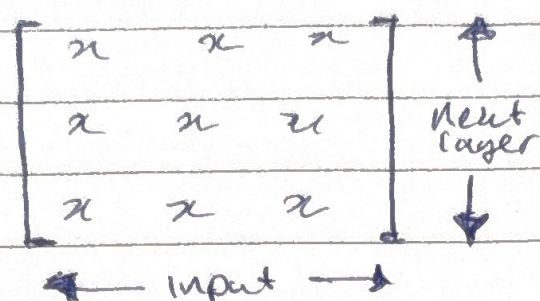 x x x
x x x
x x x
Next
layer
input